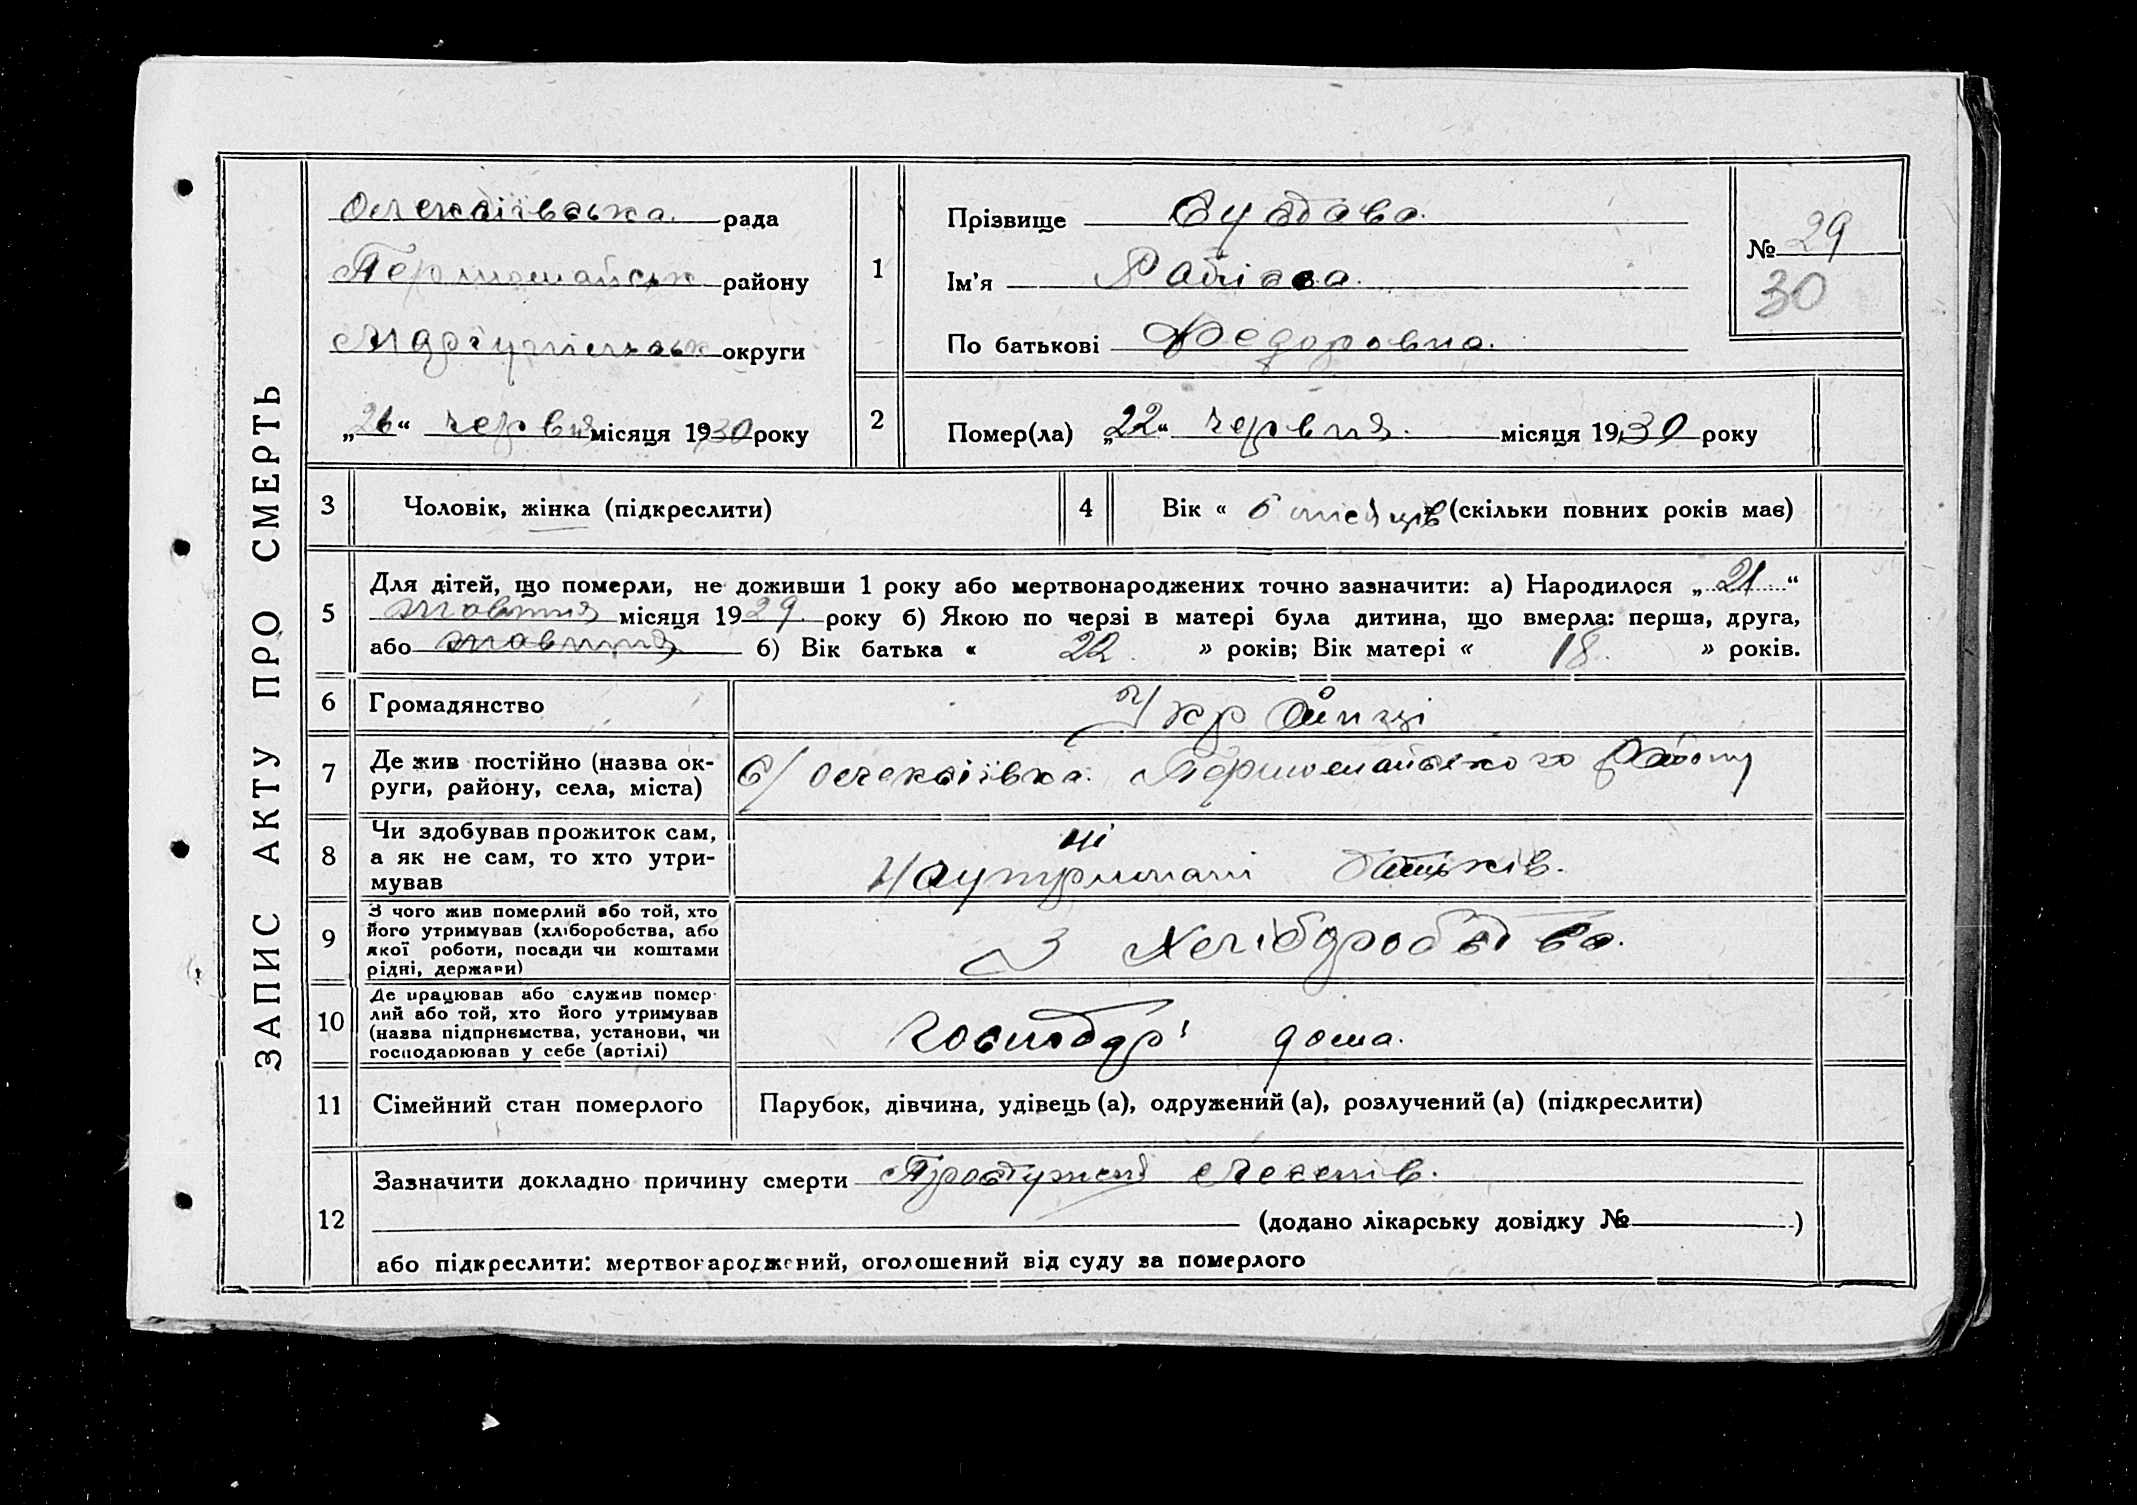 ЗАПИС АКТУ ПРО СМЕРТЬ
Олексіївська рада
Першомайськ району
округи
„26“ червня місяця 1930 року
1
Прізвище
Ім'я
По батькові Федоровна.
№ 29
30
2
Помер(ла) „22“ червня. місяця 1930 року
3
Чоловік, жінка (підкреслити)
4
Вік « 6 місяців (скільки повних років має)
5
Для дітей, що померли, не доживши 1 року або мертвонароджених точно зазначити: а) Народилося „21“
жовтня місяця 1929 року б) Якою по черзі в матері була дитина, що вмерла: перша, друга,
або б) Вік батька « 22. » років; Вік матері « 18. » років.
6
Громадянство
Українці
7
Де жив постійно (назва ок-
руги, району, села, міста)
с/ Олексіївка. Першомайського району
8
Чи здобував прожиток сам,
а як не сам, то хто утри-
мував
ні
На утриманні батьків.
9
З чого жив померлий або той, хто
його утримував (хліборобства, або
якої роботи, посади чи коштами
рідні, держави)
З Хліборобства.
10
Де працював або служив помер-
лий або той, хто його утримував
(назва підприємства, установи, чи
господарював у себе (артілі)
дома.
11
Сімейний стан померлого
Парубок, дівчина, удівець (а), одружений (а), розлучений (а) (підкреслити)
12
Зазначити докладно причину смерти
(додано лікарську довідку № )
або підкреслити: мертвонароджений, оголошений від суду за померлого